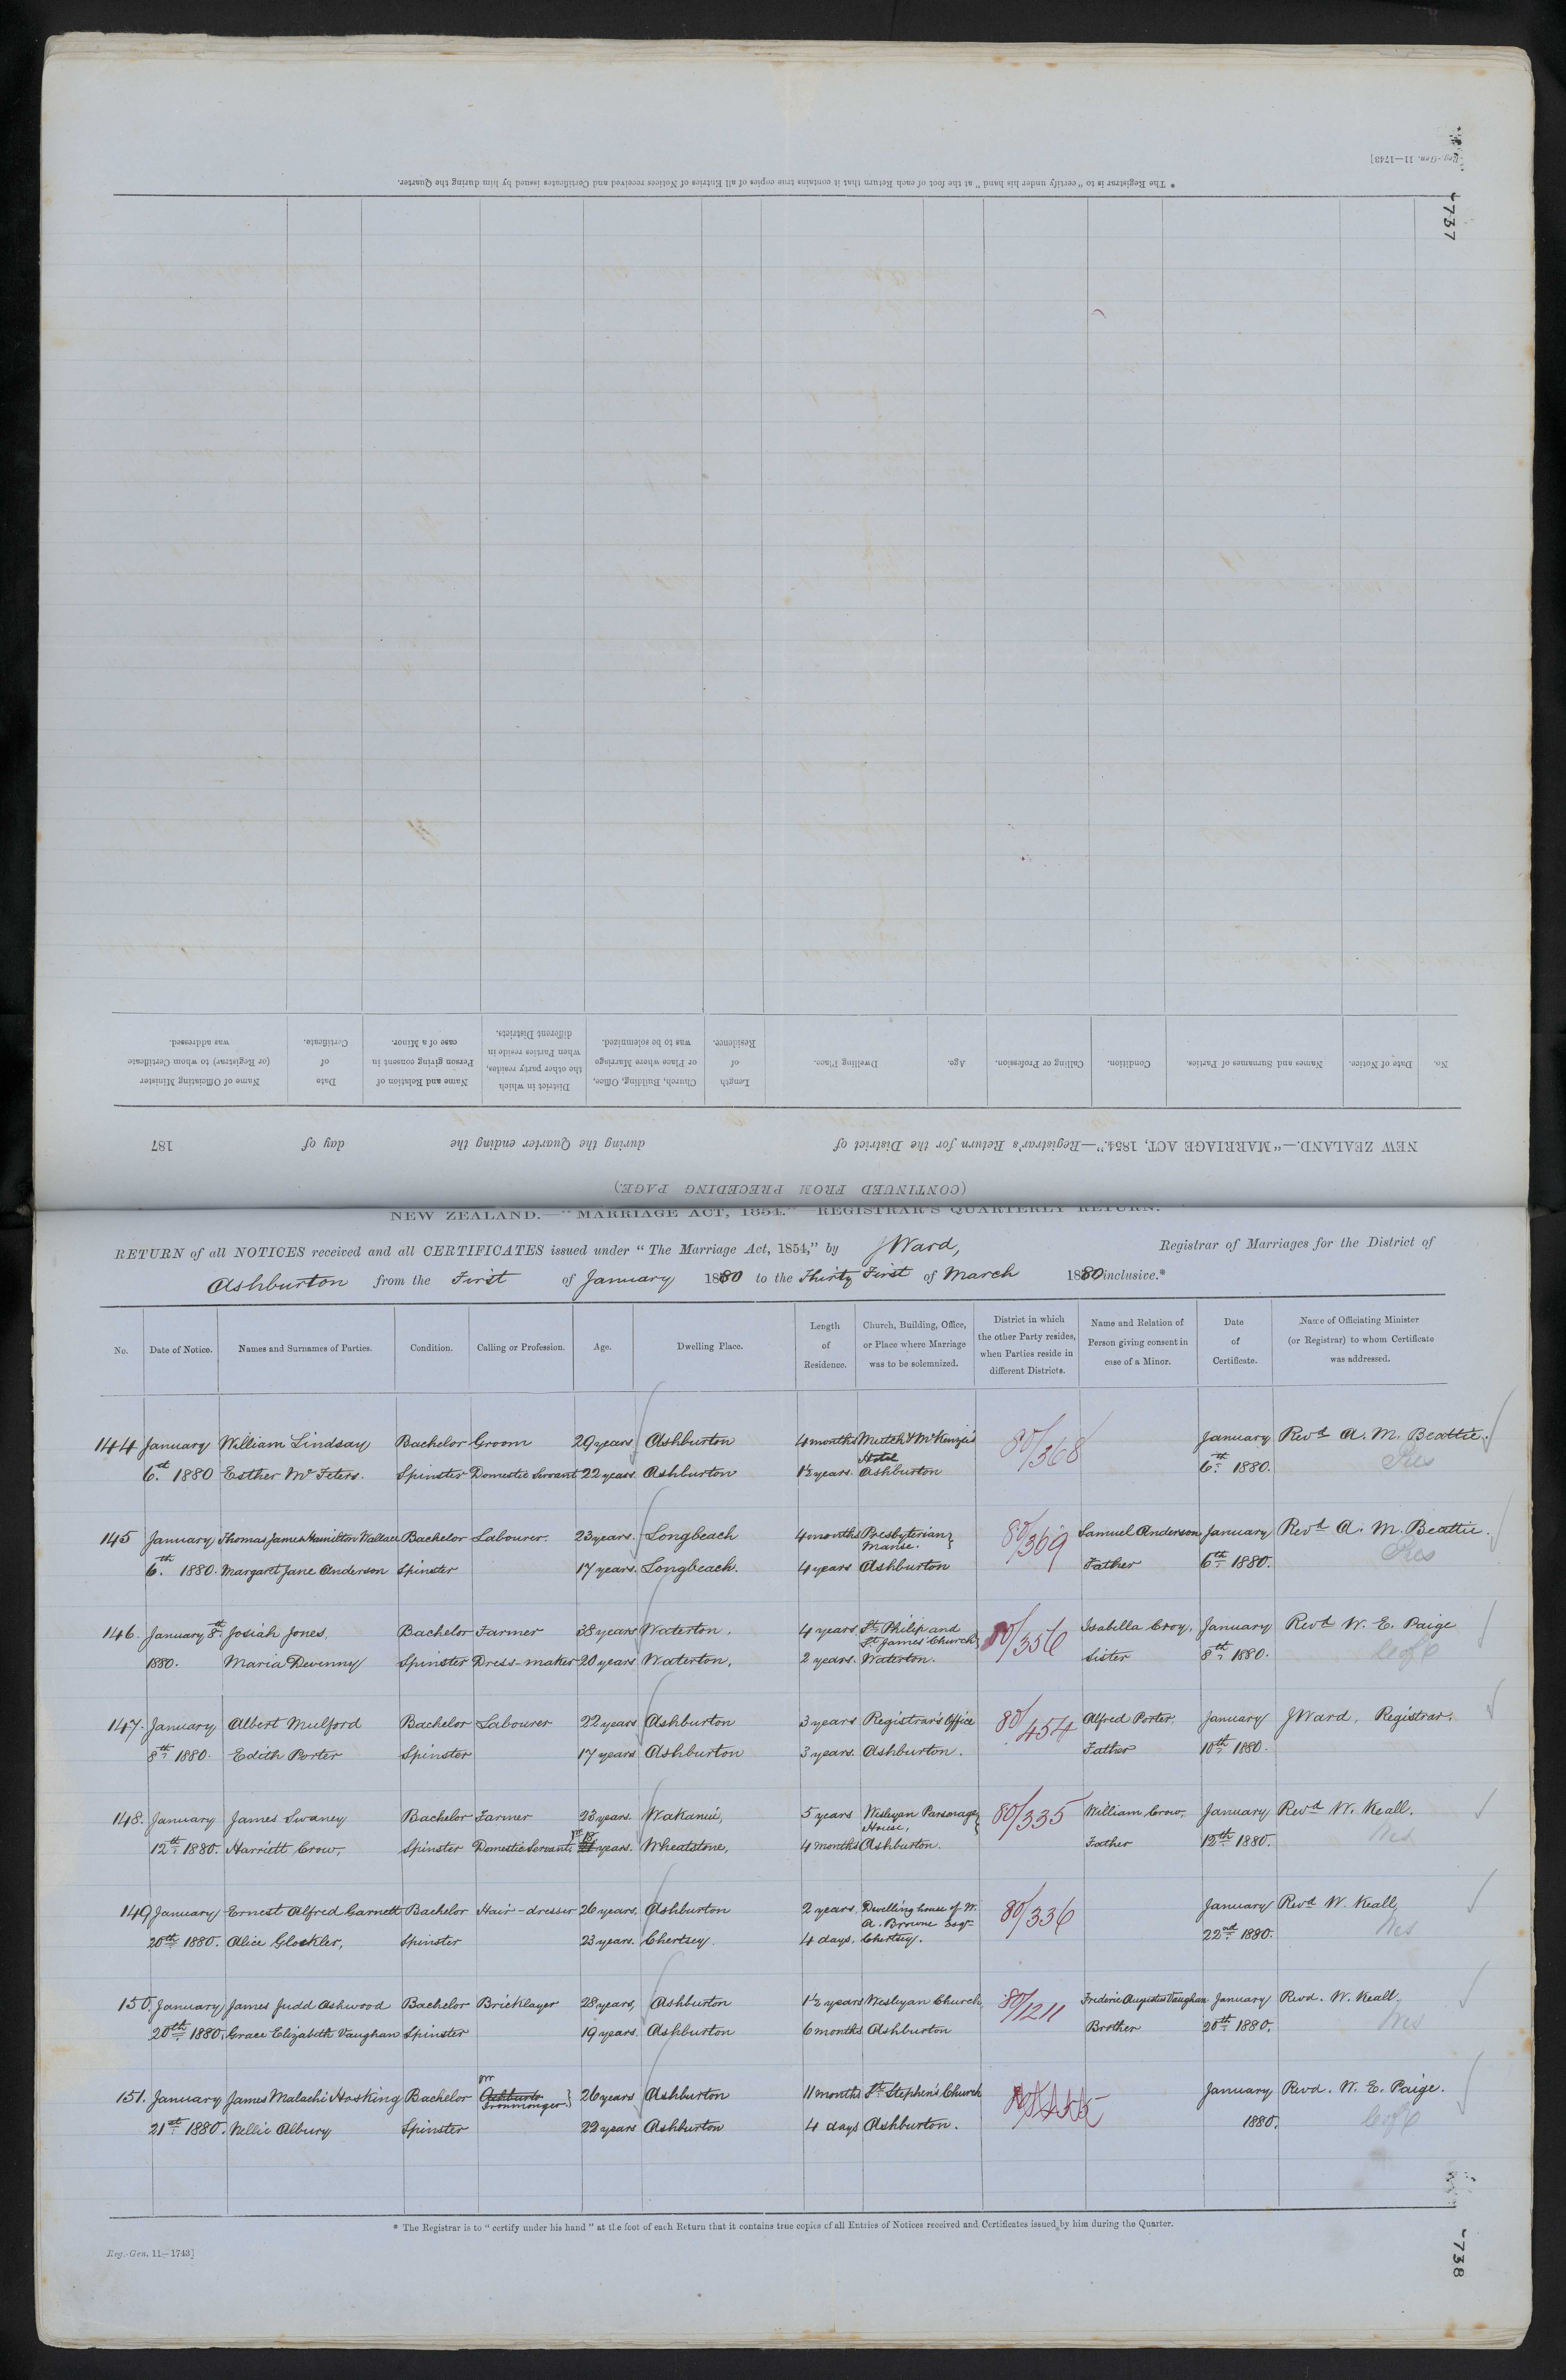 Reg.-Gen. 11—1743]
737
* The Registrar is to "certify under his hand" at the foot of each Return that it contains true copies of all Entries of Notices received and Certificates issued by him during the Quarter.
No. Date of Notice. Names and Surnames of Parties. Condition. Calling or Profession. Age. Dwelling Place. Length of Residence. Church, Building, Office, or Place where Marriage was to be solemnized. District in which the other party resides, when Parties reside in different Districts. Name and Relation of Person giving consent in case of a Minor. Date of Certificate. Name of Officiating Minister (or Registrar) to whom Certificate was addressed.
NEW ZEALAND.—"MARRIAGE ACT, 1854."—Registrar's Return for the District of during the Quarter ending the day of 187
(CONTINUED FROM PRECEDING PAGE.)
NEW ZEALAND.—"MARRIAGE ACT, 1854."—REGISTRAR'S QUARTERLY RETURN.
RETURN of all NOTICES received and all CERTIFICATES issued under "The Marriage Act, 1854," by J Ward, Registrar of Marriages for the District of
Ashburton from the First of January 1880 to the Thirty First of March 1880 inclusive.*
No. Date of Notice. Names and Surnames of Parties. Condition. Calling or Profession. Age. Dwelling Place. Length of Residence. Church, Building, Office, or Place where Marriage was to be solemnized. District in which the other Party resides, when Parties reside in different Districts. Name and Relation of Person giving consent in case of a Minor. Date of Certificate. Name of Officiating Minister (or Registrar) to whom Certificate was addressed.
144 January William Lindsay Bachelor Groom 29 years Ashburton 4 months Mutch & McKenzie's Hotel 80/368 January Revd A. M. Beattie.
6th 1880 Esther McFeters. Spinster Domestic Servant 22 years Ashburton 1½ years. Ashburton 6th 1880. Pres
145 January Thomas James Hamilton Wallace Bachelor Labourer. 23 years. Longbeach 4 months Presbyterian Manse. 80/369 Samuel Anderson January Revd A. M. Beattie.
6th 1880. Margaret Jane Anderson Spinster 17 years. Longbeach. 4 years Ashburton Father 6th 1880. Pres
146. January 8th Josiah Jones, Bachelor Farmer 38 years Waterton, 4 years St Philip and St James' Church 80/356 Isabella Croy, January Revd W. E. Paige
1880. Maria Devenny Spinster Dress-maker 20 years Waterton, 2 years. Waterton. Sister 8th 1880. C of E
147. January Albert Mulford Bachelor Labourer 22 years Ashburton 3 years Registrar's Office 80/454 Alfred Porter, January J Ward, Registrar.
8th 1880. Edith Porter Spinster 17 years Ashburton 3 years. Ashburton. Father 10th 1880.
148. January James Swaney Bachelor Farmer 23 years. Wakanui, 5 years Wesleyan Parsonage House, 80/335 William Crow, January Revd W. Keall.
12th 1880. Harriett Crow, Spinster Domestic Servant 18 years. Wheatstone, 4 months Ashburton. Father 12th 1880. Wes
149 January Ernest Alfred Garnett Bachelor Hair-dresser 26 years, Ashburton 2 years, Dwelling house of W. A. Browne Esqr 80/336 January Revd W. Keall,
20th 1880. Alice Glockler, Spinster 23 years. Chertsey. 4 days, Chertsey. 22nd 1880. Wes
150. January James Judd Ashwood Bachelor Bricklayer 28 years, Ashburton 1½ years Wesleyan Church, 80/1211 Frederic Augustus Vaughan January Revd. W. Keall.
20th 1880. Grace Elizabeth Vaughan Spinster 19 years. Ashburton 6 months Ashburton Brother 20th 1880. Wes
151. January James Malachi Hosking Bachelor Ashburto Ironmonger 26 years Ashburton 11 months St Stephen's Church January Revd. W. E. Paige.
21st 1880. Nellie Albury Spinster 22 years Ashburton 4 days Ashburton. 1880. C of E
* The Registrar is to "certify under his hand" at the foot of each Return that it contains true copies of all Entries of Notices received and Certificates issued by him during the Quarter.
Reg.-Gen. 11—1743]
738